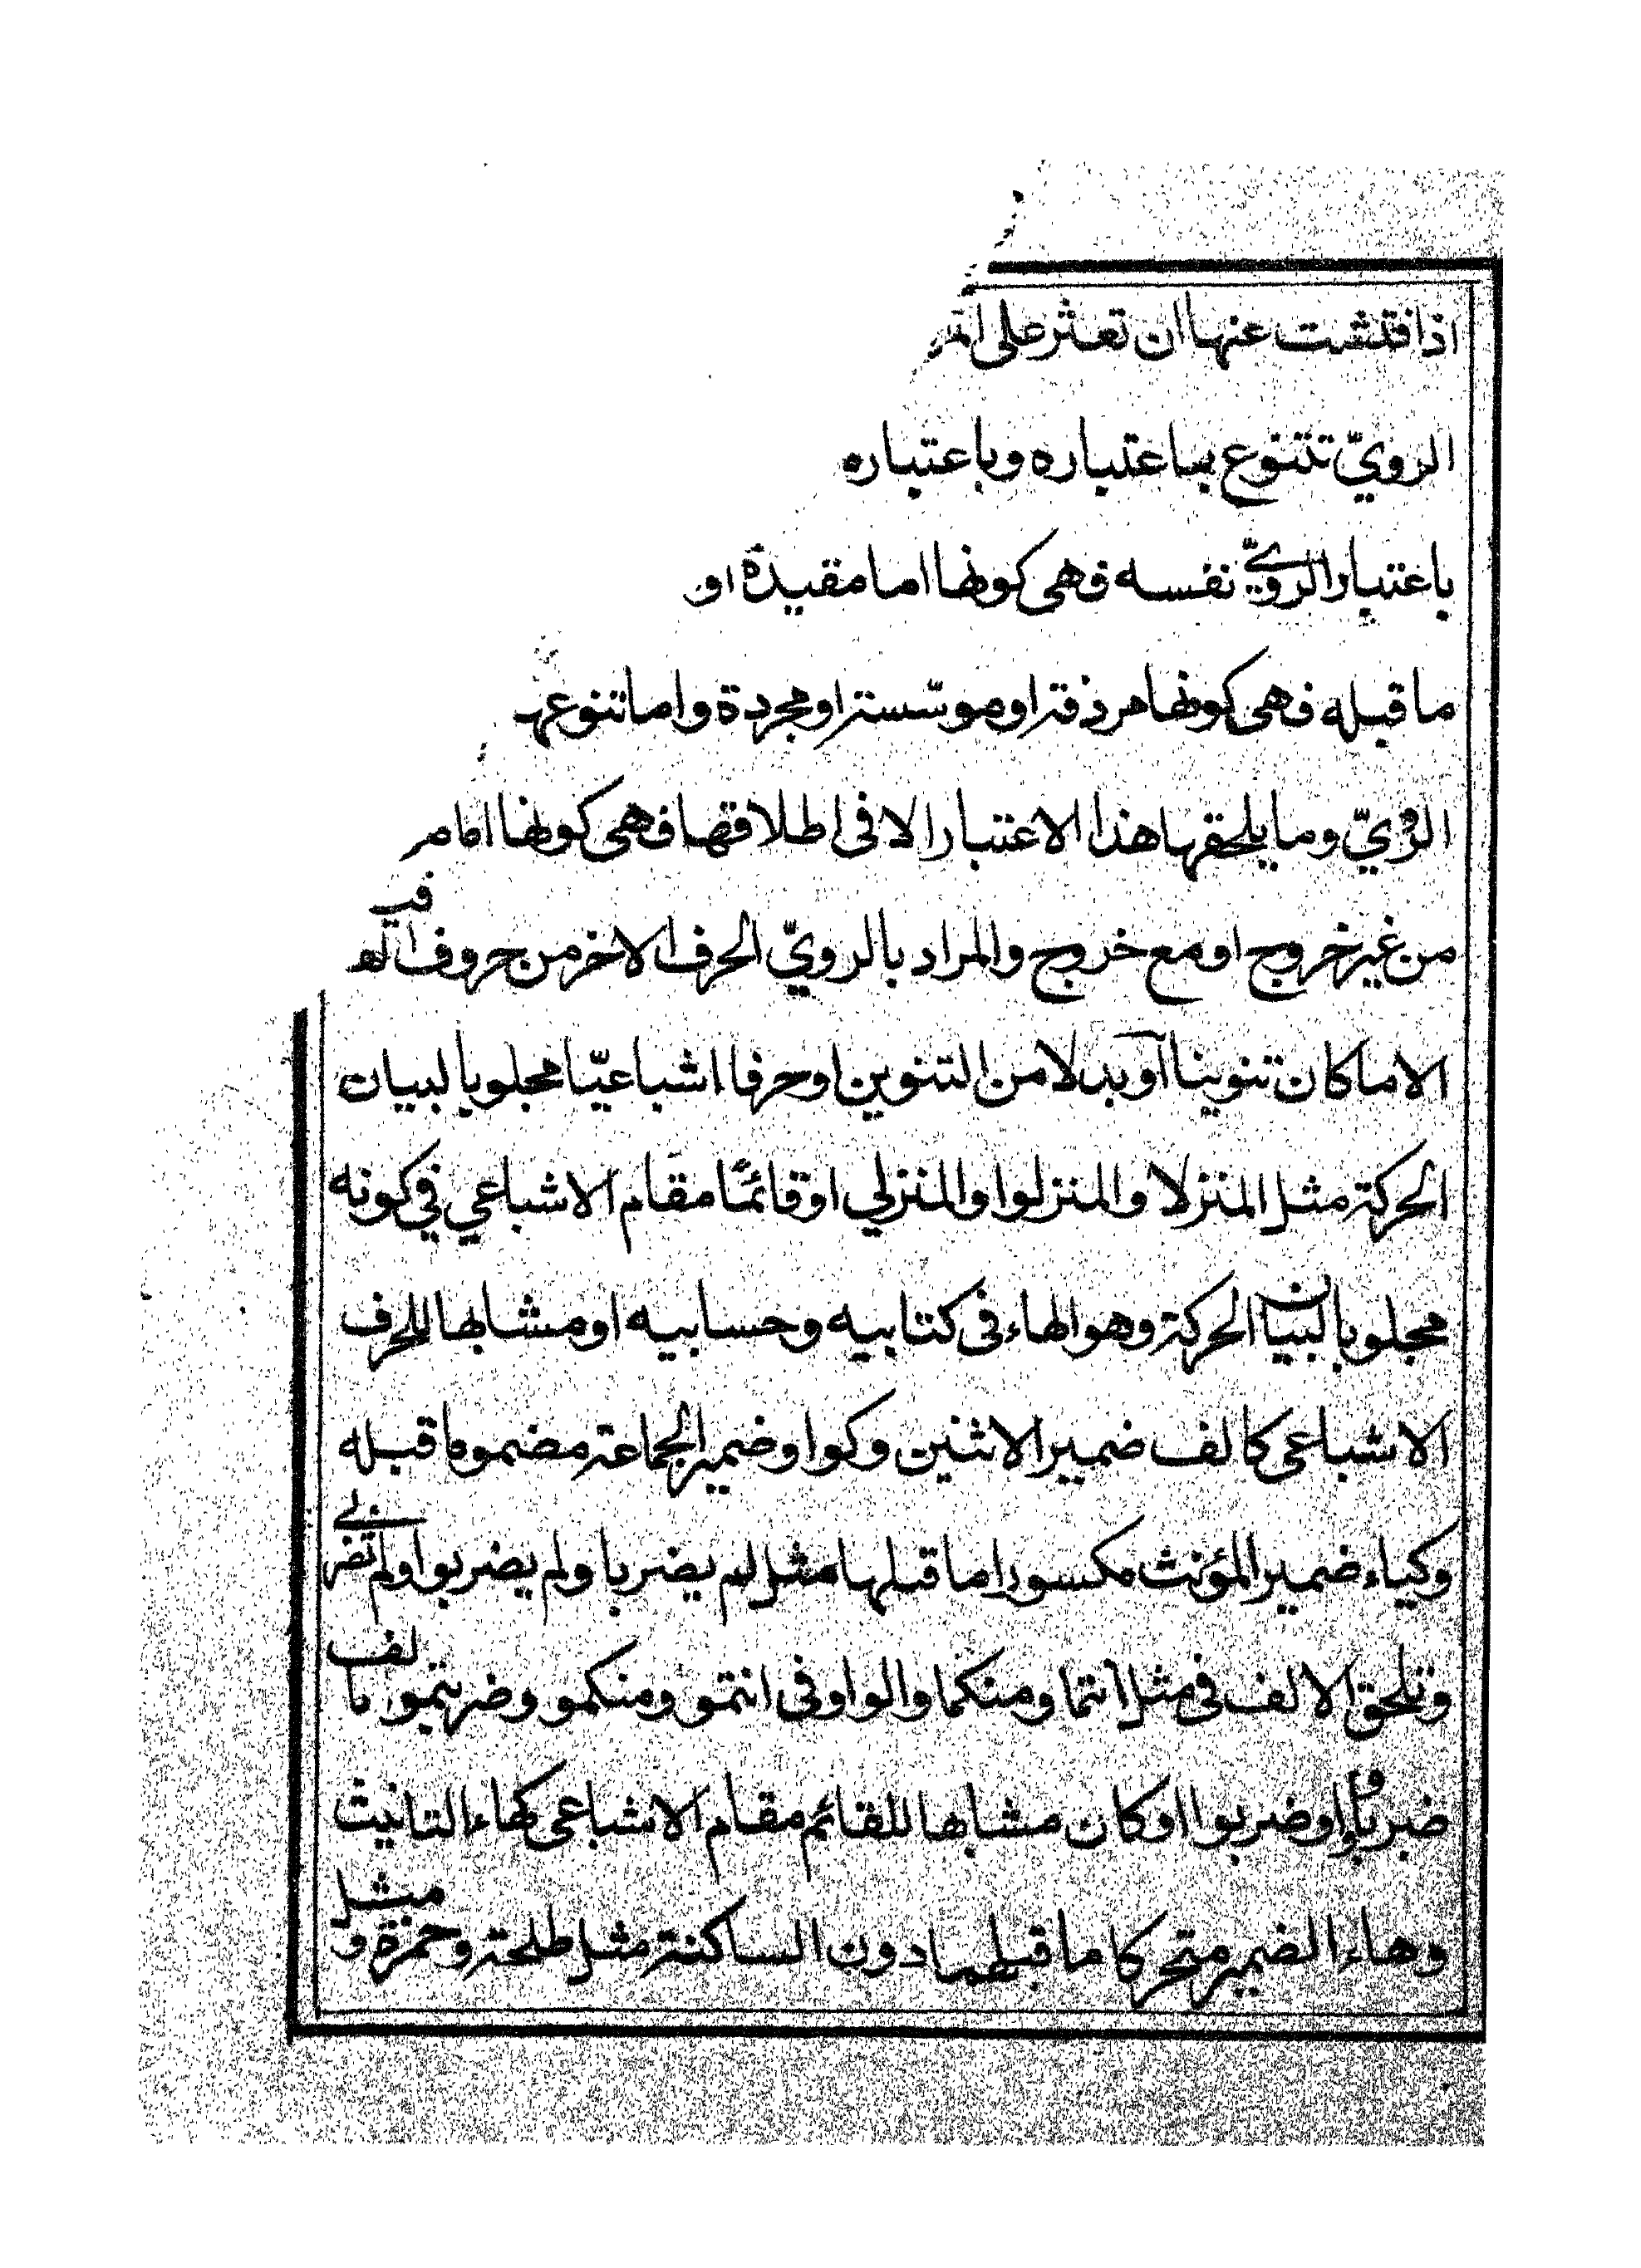 اذا فتشت عنها ان تعثر على
الرويّ تتنوع باعتباره وباعتباره
باعتبار الرويّ نفسه فهى كونها اما مقيدة او
ما قبله فهى كونها مردفة او موسّسة او مجردة واما تنوعها
الرويّ وما يلحقها هذا الاعتبار الا فى اطلاقها فهى كونها اما
من غير خروج او مع خروج والمراد بالرويّ الحرف الاخر من حروف القافية
الا ما كان تنوينا او بدلا من التنوين او حرفا اشباعيّا مجلوبا لبيان
الحركة مثل المنزلا والمنزلوا والمنزلي او قائمًا مقام الاشباعي في كونه
مجلوبا لبيان الحركة وهو الهاء فى كتابيه وحسابيه او مشابها للحرف
الاشباعى كالف ضمير الاثنين وكواو ضمير الجماعة مضموما قبله
وكياء ضمير المؤنث مكسورا ما قبلها مثل لم يضربا ولم يضربوا ولم تضربي
وتلحق الالف في مثل انتما ومنكما والواو فى انتمو ومنكمو وضربتمو بالف
ضربا وواو ضربوا او كان مشابها للقائم مقام الاشباعى كهاء التانيث
وهاء الضمير متحركا ما قبلهما دون الساكنة مثل طلحة وحمزة و مثل